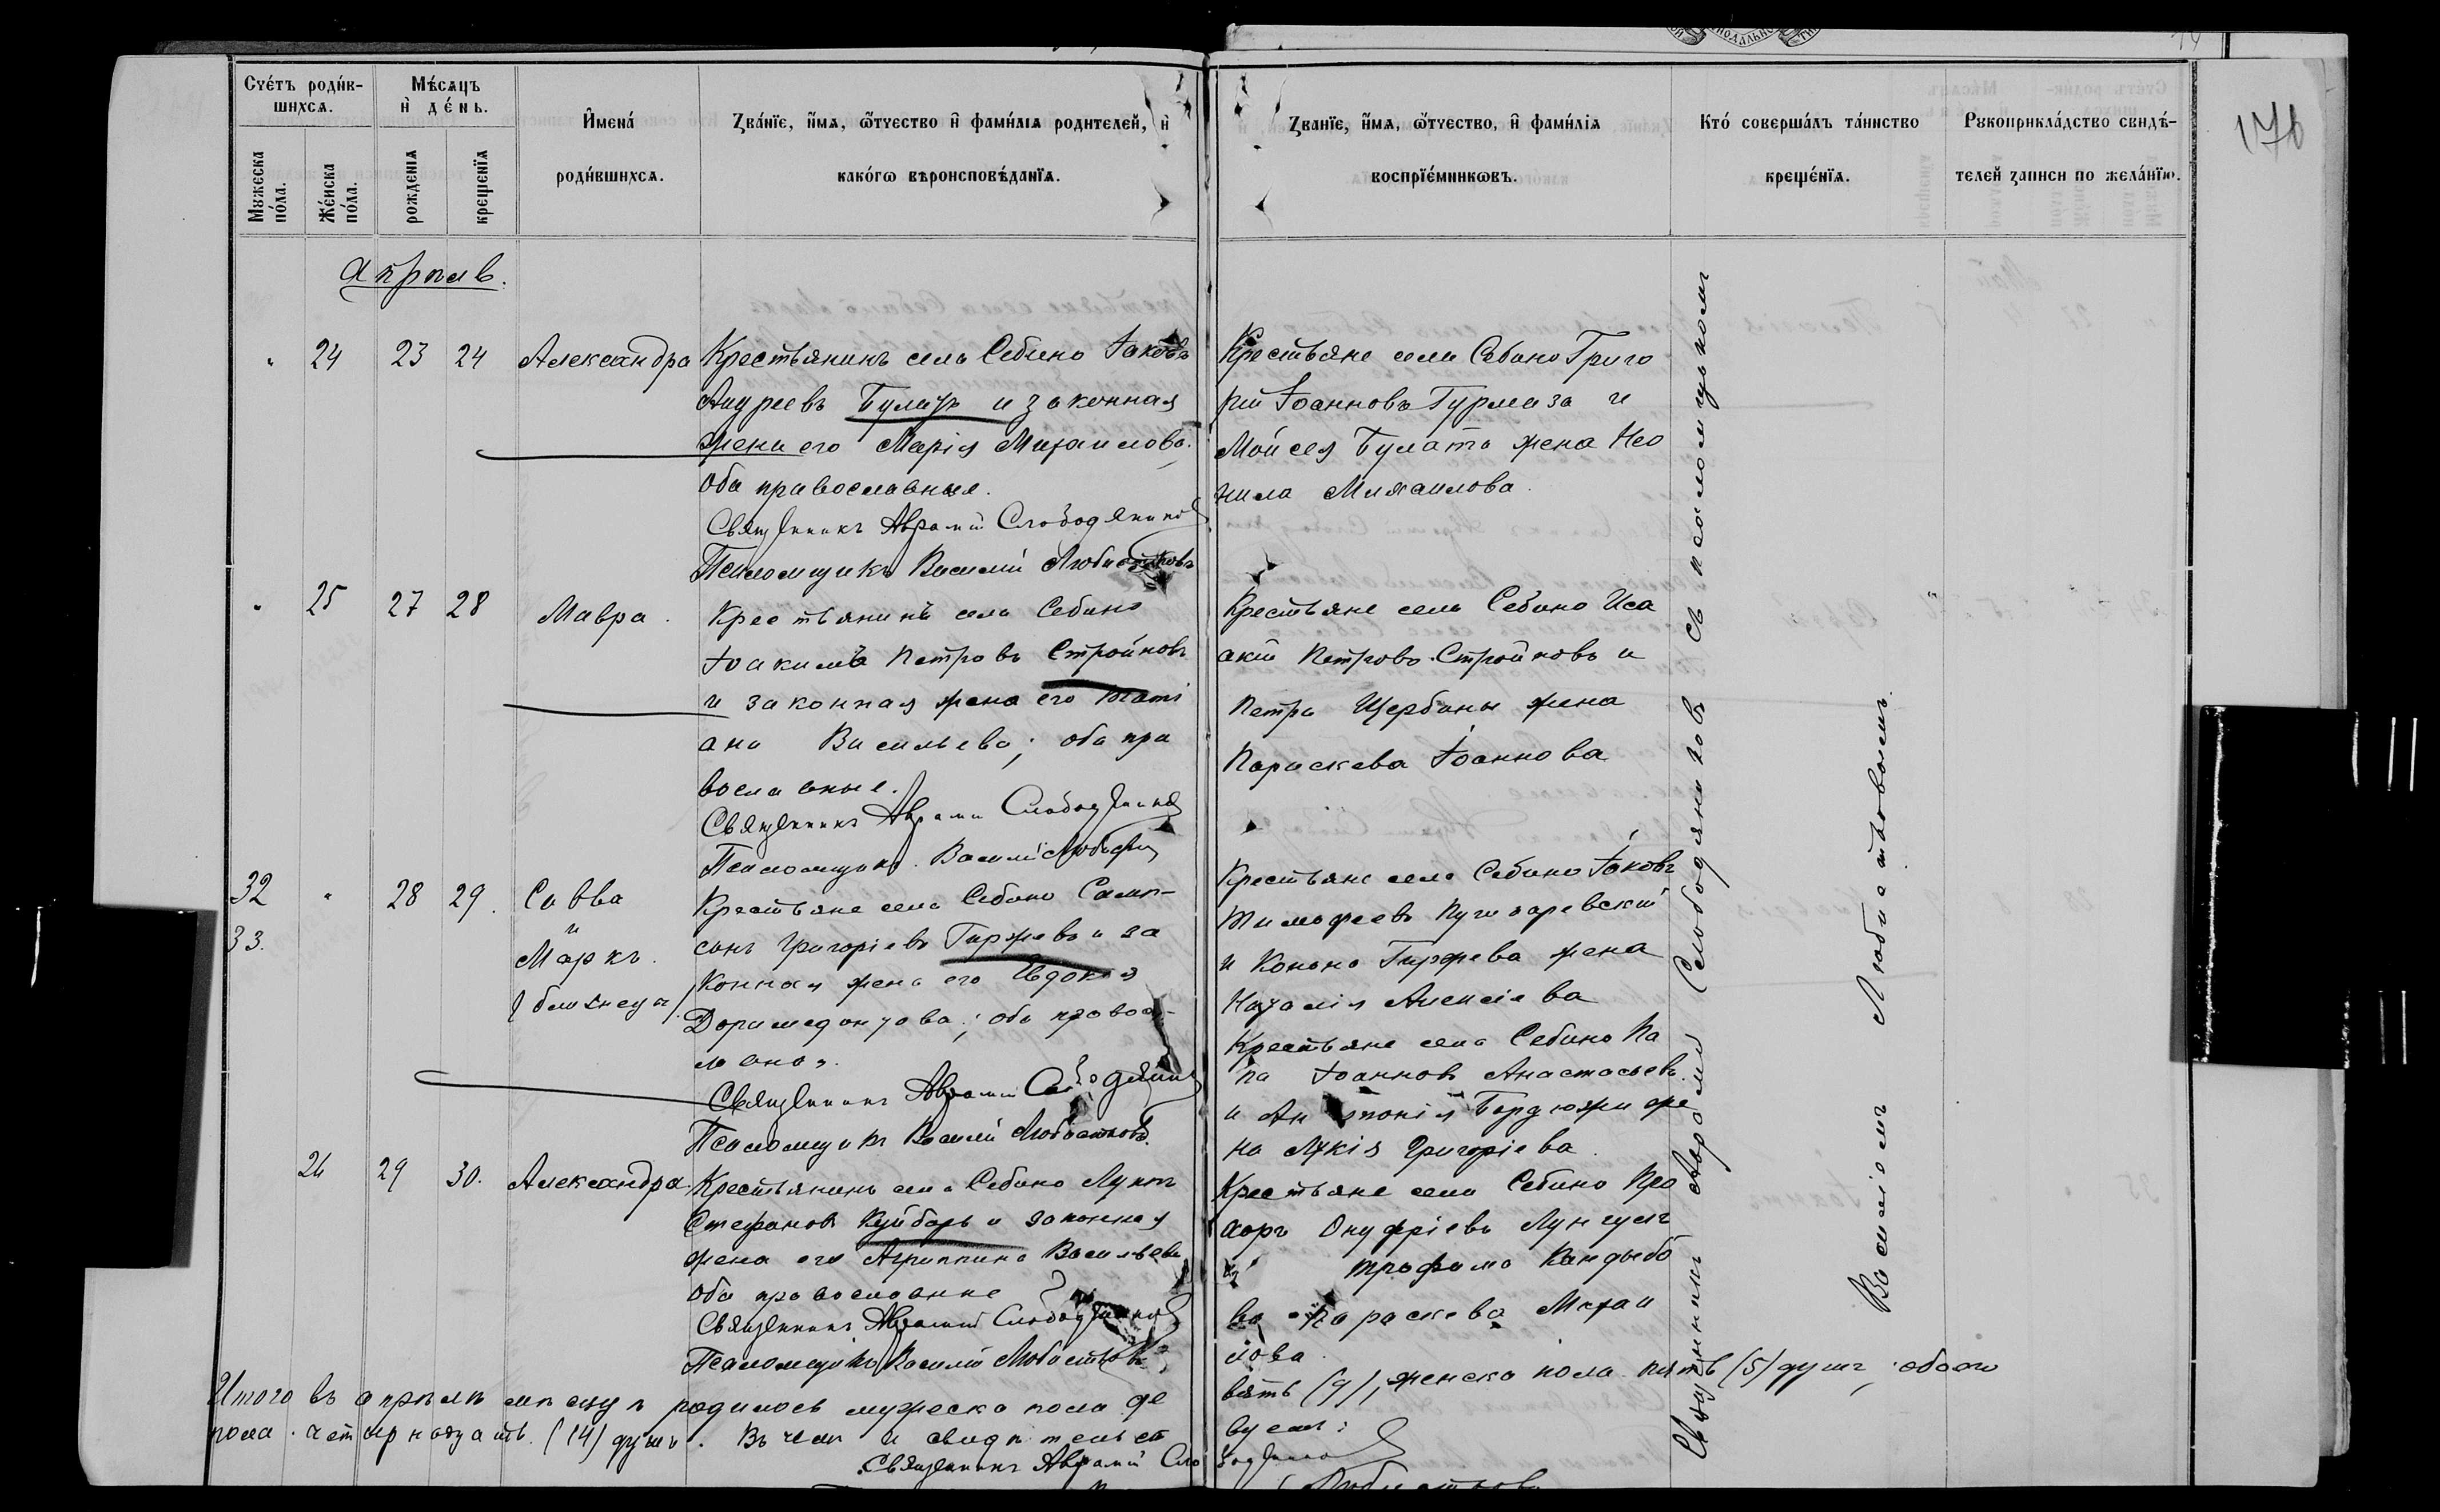 Счетъ родив-
шихся.
Мужеска
пола.
Женска
пола.
Мѣсяцъ
и день.
рожденія
крещенія
Имена
родившихся.
Званіе, имя, отчество и фамилія родителей, и
какого вѣроисповѣданія.
Званіе, имя, отчество, и фамилія
воспріемниковъ.
Кто совершалъ таинство
крещенія.
Рукоприкладство свидѣ-
телей записи по желанію.
176
Апрѣль.
24 23 24 Александра
Крестьянинъ села Себино Іаковъ
Андреевъ Булатъ и законная
жена его Марія Михаилова.
оба православныя.
Священникъ Аврамій Слободяниковъ
Псаломщикъ Василій Любистковъ
Крестьяне села Себино Григо
рій Іоанновъ Гурмаза и
Мойсея Булата жена Нео
нила Михаилова.
25 27 28 Мавра.
Крестьянинъ села Себино
Іоакимъ Петровъ Стройновъ
и законная жена его Таті
ана Васильева; оба пра
вославные.
Священникъ Аврамій Слободяниковъ
Псаломщикъ Василій
Крестьяне села Себино Иса
акій Петровъ Стройновъ и
Петра Щербаны жена
Параскева Іоаннова
32 28 29. Савва
33. и
Маркъ.
(близнецы).
Крестьяне села Себино Самп-
сонъ Григоріевъ Гиржевъ и за
конная жена его Евдокія
Доримедонтова; оба правос-
лавная.
Священникъ Аврамій
Псаломщикъ Василій Любистковъ.
Крестьяне села Себино Іаковъ
Тимофеевъ
и Конона Гиржева жена
Наталія Алексіева
Крестьяне села Себино Па
па Іоанновъ Анастасьевъ.
и Антонія Бардюжи же
на Лукія Григоріева.
26 29 30. Александра.
Крестьянинъ села Себино Лука
Стефановъ Куйбарь и законная
жена его Агриппина Васильева
оба православные
Священникъ Аврамій Слободяниковъ
Псаломщикъ Василій Любистковъ
Крестьяне села Себино Про
хоръ Онуфріевъ Лунгулъ
и Трофима Кандыбо
ва Параскева Михаи
лова.
Священникъ Аврамій Слободяниковъ съ псаломщикомъ
Василіемъ Любистковымъ.
Итого въ апрѣлѣ мѣсяцѣ родилось мужеска пола де
вять (9), женска пола пять (5) душъ, обоего
пола четырнадцать (14) душъ. Въ чемъ и свидѣтельст
вуемъ:
Священникъ Аврамій Сло